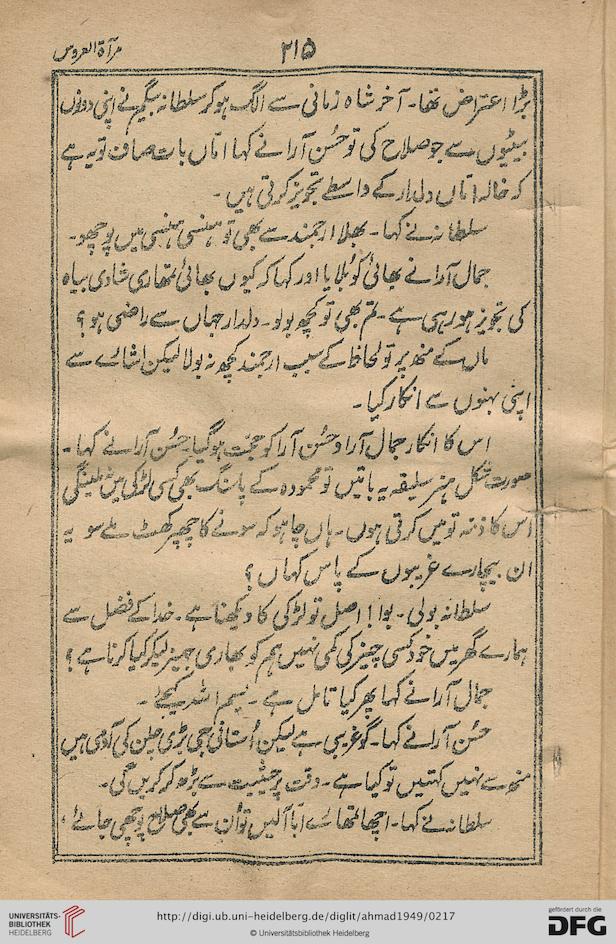 مرآۃ العروس
۲۱۵
بڑا اعتراض تھا۔ آخر شاہ زمانی سے الگ ہو کر سلطانہ بیگم نے اپنی دونوں
بیٹیوں سے جو صلاح کی تو حُسن آرا نے کہا اماں بات صاف تو یہ ہے
کہ خالہ اماں دلدار کے واسطے تجویز کرتی ہیں۔
سلطانہ نے کہا۔ بھلا ارجمند سے بھی تو ہنسی ہنسی میں پوچھو۔
جمال آرا نے بھائی کو بُلایا اور کہا کہ کیوں بھائی تمھاری شادی بیاہ
کی تجویز ہو رہی ہے۔ تم بھی تو کچھ بولو۔ دلدار جہاں سے راضی ہو؟
ماں کے منھ پر تو لحاظ کے سبب ارجمند کچھ نہ بولا لیکن اشارے سے
اپنی بہنوں سے انکار کیا۔
اس کا انکار جمال آرا و حُسن آرا کو حجت ہو گیا۔ حُسن آرا نے کہا۔
صورت شکل ہنر سلیقہ یہ باتیں تو محمودہ کے پاسنگ بھی کسی لڑکی میں نہ ملینگی
اس کا ذمہ تو میں کرتی ہوں۔ ہاں چاہو کہ سونے کا چھپر کھٹ ملے سو یہ
ان بیچارے غریبوں کے پاس کہاں؟
سلطانہ بولی۔ بوا! اصل تو لڑکی کا دیکھنا ہے۔ خدا کے فضل سے
ہمارے گھر میں خود کسی چیز کی کمی نہیں ہم کو بھاری جہیز لیکر کیا کرنا ہے؟
جمال آرا نے کہا پھر کیا تامل ہے۔ بسم اللہ کیجئے۔
حُسن آرا نے کہا۔ گو غریبی ہے لیکن اُستانی جی بڑی چلن کی آدمی ہیں
منھ سے نہیں کہتیں تو کیا ہے۔ وقت پر حیثیت سے بڑھ کر کریں گی۔
سلطانہ نے کہا۔ اچھا تمھارے ابا آلیں تو اُن سے بھی صلاح پوچھی جائے،
UNIVERSITÄTS-
BIBLIOTHEK
HEIDELBERG
http://digi.ub.uni-heidelberg.de/diglit/ahmad1949/0217
© Universitätsbibliothek Heidelberg
gefördert durch die
DFG